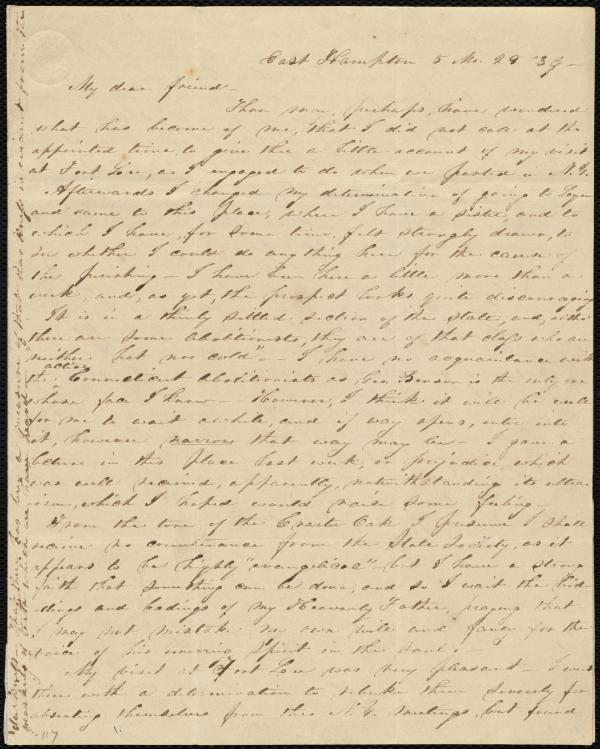 East Hampton 5 Mo. 28 '39 –
My dear friend –
Thou mayst, perhaps, have wondered
what has become of me, that I did not call at the
appointed time to give thee a little account of my visit
at Fort Lee, as I engaged to do when we parted in N.Y.
Afterwards I changed my determination of going to
and came to this place, where I have a sister, and to
which I have, for some time, felt strongly drawn, to
see whether I could do anything here for the cause of
the perishing – I have been here a little more than a
week, and, as yet, the prospect looks quite discouraging
– It is in a thinly settled section of the state, and, altho'
there are some abolitionists, they are of that class who are
neither hot nor cold – I have no acquaintance with
the Connecticut abolitionists as Geo. Benson is the only one
active
whose face I know – However, I think it will be well
for me to wait awhile, and if way opens, enter into
it, however narrow that way may be – I gave a
lecture in this place last week, on prejudice, which
was well received, apparently, notwithstanding its ultra-
ism, which I hoped would raise some feeling.
From the tone of the Charter Oak I presume I shall
receive no countenance from the State Society, as it
appears to be highly "evangelical" – but I have a strong
faith that something can be done, and so I wait the bid-
dings and leadings of my Heavenly Father, praying that
I may not mistake my own will and fancy for the
voice of his unerring Spirit in the soul. –
My visit at Fort Lee was very pleasant – I went
there with a determination to rebuke them severely for
absenting themselves from the N.Y. meetings, but found
117